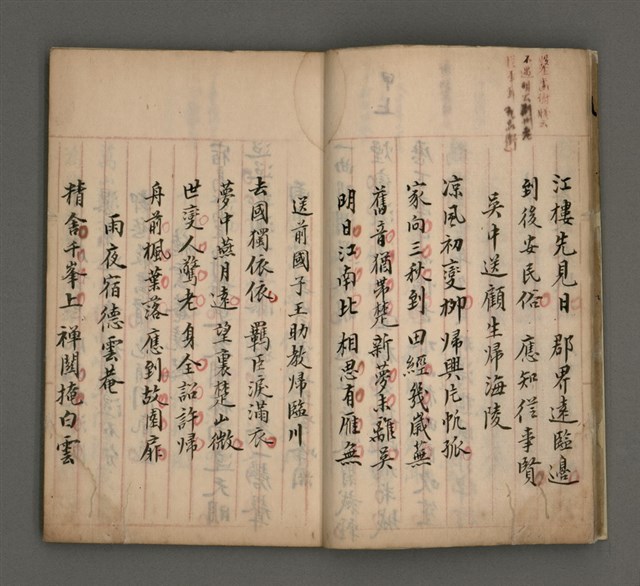 江樓先見日　郡界遠臨邊
到後安民俗　應知從事賢
吳中送顧生歸海陵
涼風初變柳　歸興片帆孤
家向三秋到　田經幾歲蕪
舊音猶帶楚　新夢未離吳
明日江南北　相思有雁無
送前國子王助教歸臨川
去國獨依依　羈臣淚滿衣
夢中燕月遠　望裏楚山微
世變人驚老　身全詔許歸
舟前楓葉落　應到故園扉
雨夜宿德雲菴
精舍千峯上　禪關掩白雲
甲上